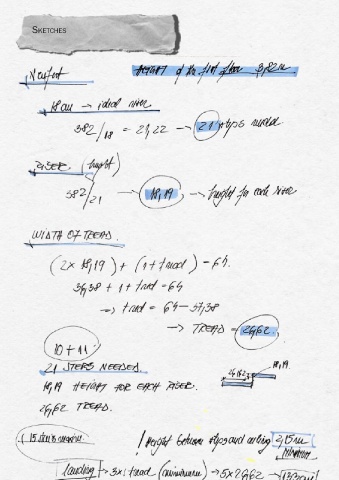 SKETCHES
HEIGHT of the first floor 3,82 m
→ ideal riser
382/18 = 21,22 → 21 steps needed
RISER (height)
382/21 → 18,19 → height for each riser
WIDTH OF TREAD.
(2 x 18,19) + (1 + tread) = 64.
36,38 + 1 + tread = 64
→ tread = 64 - 37,38
→ TREAD = 26,62
10 + 11
21 STEPS NEEDED
18,19 HEIGHT FOR EACH RISER.
26,62 TREAD.
26,62
18,19
! Height between steps and ceiling 2,15 m
Minimum
landing → 3x tread (minimum) → 5 x 26,62 →